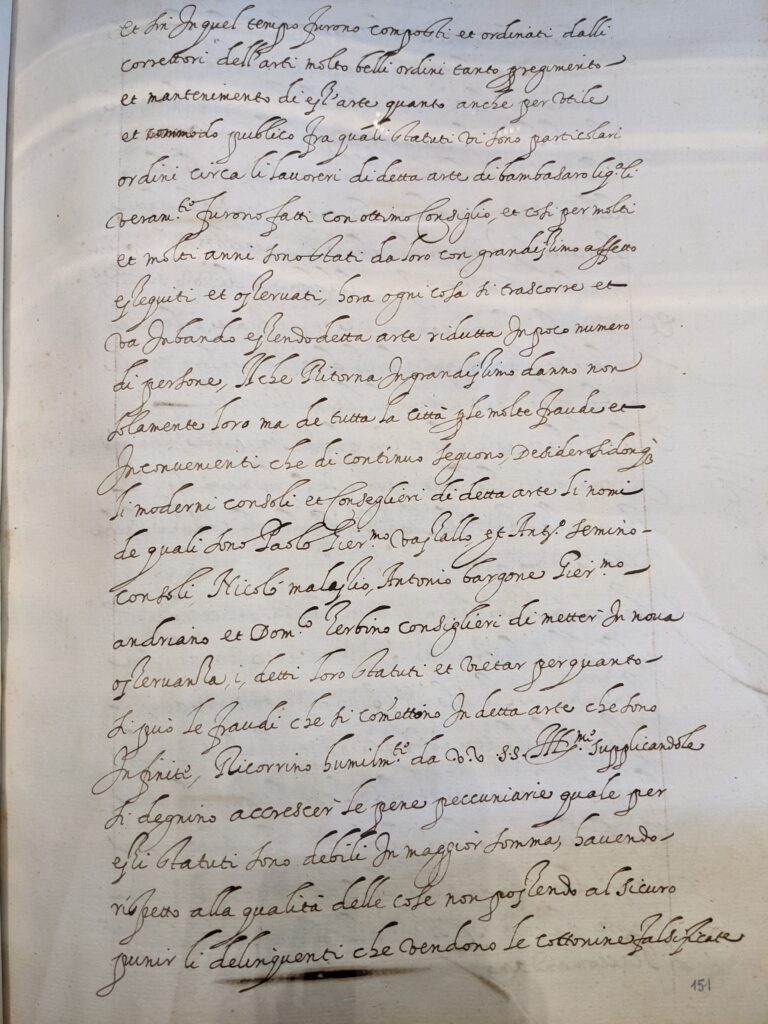 et sin In quel tempo furono composti et ordinati dalli
correttori dell'arti molto belli ordini tanto p regimento
et mantenimento di essa arte quanto anche per utile
et commodo publico fra quali statuti vi sono particolari
ordini circa li lavoreri di detta arte di bambasaro li q.li
veram.te furono fatti con ottimo Consiglio, et cosi per molti
et molti anni sono stati da loro con grandissimo affetto
esseguiti et osservati, hora ogni cosa si trascorre et
va In bando essendo detta arte ridutta In poco numero
di persone, Il che Ritorna In grandissimo danno non
solamente loro ma de tutta la città p le molte fraudi et
Inconvenienti che di continuo seguono, Desiderosi donq
li moderni consoli et Conseglieri di detta arte li nomi
de quali sono Paolo Gier.mo vassallo, et Ant.o semino
consoli Nicolò malassio, Antonio bargone Gier.mo
andriano et Dom.co Zerbino consiglieri di metter In nova
osservanza, i, detti loro statuti et vietar per quanto
si può le fraudi che si comettono In detta arte che sono
Infinite, Ricorrino humilm.te da V.V. S.S. Ill.me supplicandole
si degnino accrescer le pene peccuniarie quale per
essi statuti sono debili In maggior somma, havendo
rispetto alla qualità delle cose non possendo al sicuro
punir li delinquenti che vendono le cottonine falsificate
151